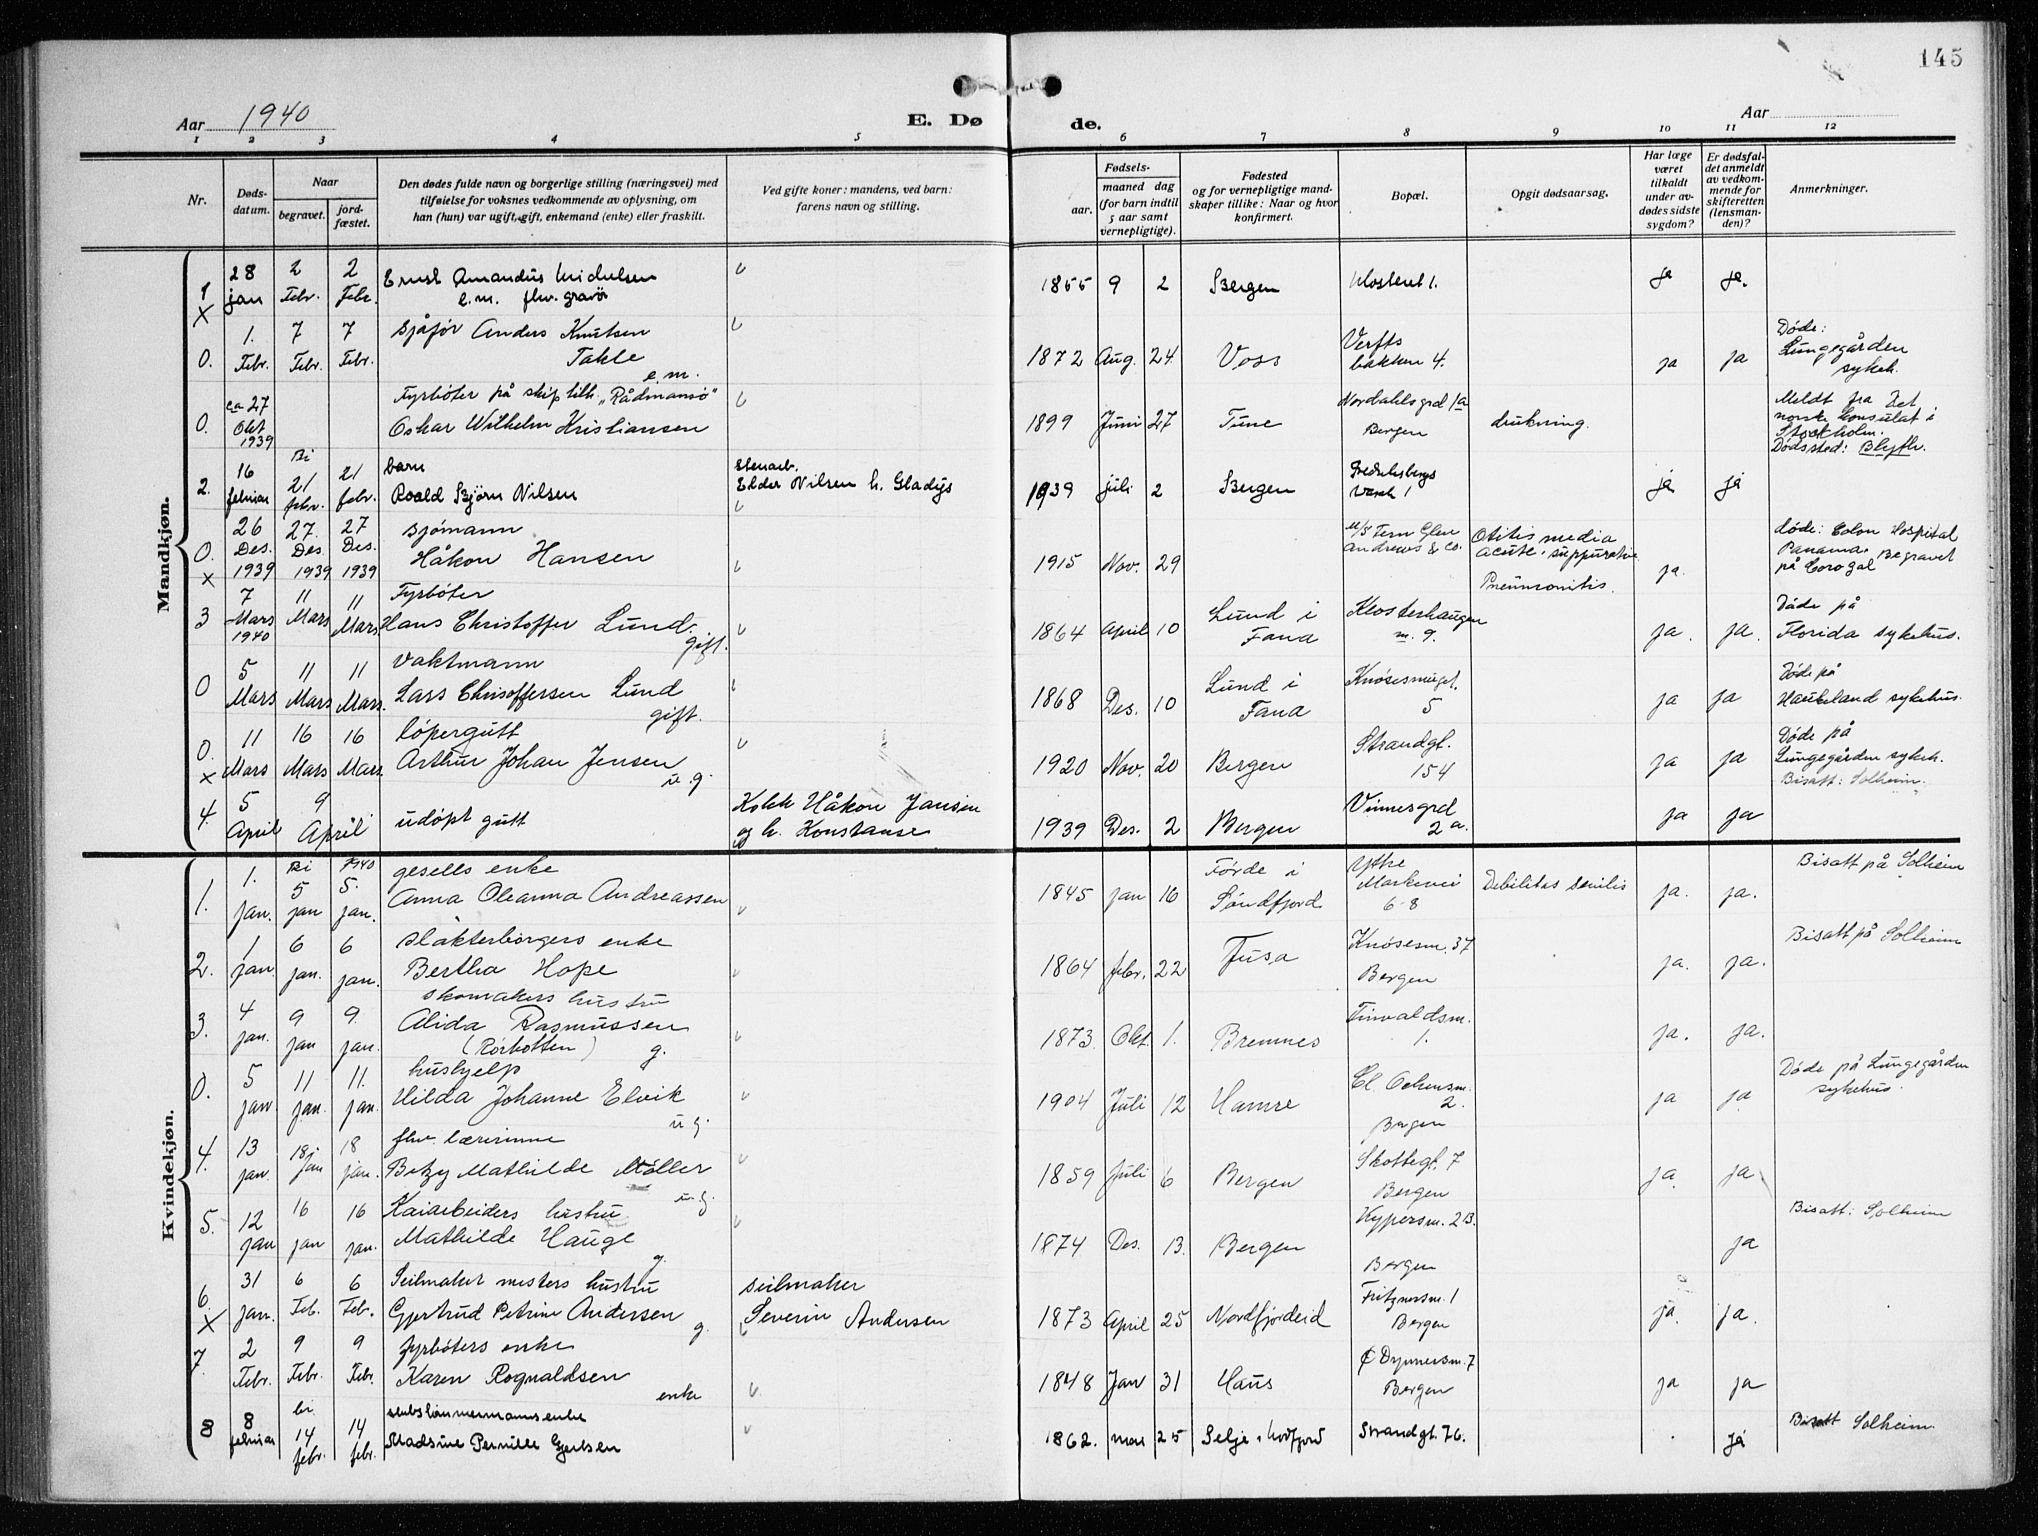 145
Aar 1940
E. Døde.
Aar
1 2 3 4 5 6 7 8 9 10 11 12
Nr.
Dødsdatum.
Naar
begravet.
jordfæstet.
Den dødes fulde navn og borgerlige stilling (næringsvei) med
tilføielse for voksnes vedkommende av oplysning, om
han (hun) var ugift, gift, enkemand (enke) eller fraskilt.
Ved gifte koner: mandens, ved barn:
farens navn og stilling.
Fødsels-
aar.
maaned dag
(for barn indtil
5 aar samt
vernepligtige).
Fødested
og for vernepligtige mand-
skaper tillike: Naar og hvor
konfirmert.
Bopæl.
Opgit dødsaarsag.
Har læge
været
tilkaldt
under av-
dødes sidste
sygdom?
Er dødsfal-
det anmeldt
av vedkom-
mende for
skifteretten
(lensman-
den)?
Anmerkninger.
Mandkjøn.
1 x 28 jan 2 Febr. 2 Febr. Ernst Amandus Michelsen
e.m. fhv. gravør
1855 9 2 Bergen Klosteret 1. ja ja.
0. 1. Febr. 7 Febr. 7 Febr. sjåfør Anders Knutsen
Takle
e.m.
1872 Aug. 24 Voss Verfts
bakken 4. ja ja Døde:
Lungegården
sykeh.
0. ca 27 Okt 1939 Fyrbøter på skip tilh. "Rådmansö"
Oskar Wilhelm Kristiansen
1899 Juni 27 Tune Nordahlsgrd 1a
Bergen drukning. Meldt fra Det
norske Consulat i
Stockholm.
Dødssted: Blyth.
2. 16 februar Bi 21 febr. 21 febr. barn
Roald Bjørn Nilsen
stenarb.
Elder Nilsen h. Gladys
1939 juli 2 Bergen Fredriksbergs
Væsk 1 ja ja
0. x 26 Des. 1939 27. Des 1939 27 Des. 1939 sjømann
Håkon Hansen
1915 Nov. 29 M/S Tern Glen
Andrews & Co. Otitis media
acute suppurative
Pneumonitis. ja. døde: Colon Hospital
Panama. Begravet
på Corogal
3 7 Mars 1940 11 Mars 11 Mars Fyrbøter
Hans Christoffer Lund.
gift.
1864 April 10 Lund i
Fana Klosterhaugen
m. 9. ja. ja. Døde på
Florida sykehus.
0 5 Mars 11 Mars 11 Mars. Vaktmann
Lars Chrisoffersen Lund
gift.
1868 Des. 10 Lund i
Fana Knøsesmuget.
5 ja ja Døde på
Haukeland sykehus.
0. x 11 Mars 16 Mars 16 Mars. løpergutt
Arthur Johan Jensen
u.g.
1920 Nov. 20 Bergen Strandgt.
154 ja ja Døde på
Lungegården sykeh.
Bisatt: Solheim.
4. 5 April 9 April udøpt gutt
Kokk Håkon Jansen
og h. Konstanse
1939 Des. 2 Bergen Vinnesgrd
2 a. ja ja
Kvindekjøn.
1. 1. jan. Bi 5 jan 1940 5. jan. gesells enke
Anna Oleanna Andreassen
1845 jan 16 Førde i
Søndfjord Ytre
Markevei
6-8 Debilitas senilis ja. ja. Bisatt på Solheim
2. 1 jan 6 jan. 6 jan. slakterborgers enke
Bertha Hope
1864 febr. 22 Fusa Knøsesm. 37
Bergen ja. ja. Bisatt på Solheim
3. 4 jan. 9 jan 9. jan. skomakers hustru
Alida Rasmussen
(Rørbotten) g.
1873 Okt 1. Bremnes Finvaldsm.
1. ja. ja.
0. 5 jan 11 jan. 11. jan. hushjelp
Hilda Johanne Elvik
u g.
1904 Juli 12 Hamre Cl. Ockensm.
2.
Bergen ja ja Døde på Lungegården
sykehus.
4. 13 jan. 18 jan 18 jan. fhv. lærerinne
Betzy Mathilde Møller
u.g.
1859 Juli 6 Bergen Skottegt. 7
Bergen ja ja
5. 12 jan 16 jan 16 jan. Kaiarbeiders hustru
Mathilde Hauge
g.
1874 Des. 13. Bergen Kypersm. 2B.
Bergen ja Bisatt: Solheim
6. x 31 jan. 6 Feb. 6 Feb. Seilmaker mesters hustru
Gjertrud Petrine Andersen
g.
seilmaker
Severin Andersen
1873 April 25 Nordfjordeid Fritznersm. 1
Bergen ja. ja.
7. 2 Febr. 9 Febr. 9 Febr. fyrbøters enke
Karen Rognaldsen
enke
1848 Jan 31 Haus C Dynnersm. 7
Bergen ja ja
8 8 februar bi. 14 febr. 14 febr.
Madsine Pernille Gjertsen
1862. mai 25 Selje i Nordfjord Strandgt. 76. ja Bisatt Solheim.